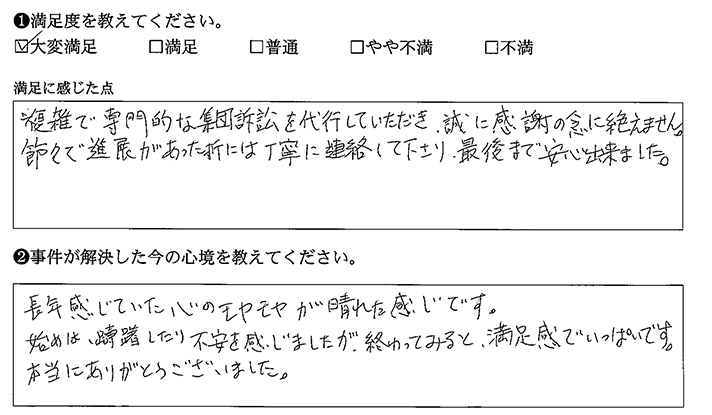 ❶満足度を教えてください。
☑大変満足 □満足 □普通 □やや不満 □不満
満足に感じた点
複雑で専門的な集団訴訟を代行していただき、誠に感謝の念に絶えません。
節々で進展があった折には丁寧に連絡して下さり、最後まで安心出来ました。
❷事件が解決した今の心境を教えてください。
長年感じていた心のモヤモヤが晴れた感じです。
始めは、躊躇したり不安を感じましたが、終わってみると、満足感でいっぱいです。
本当にありがとうございました。